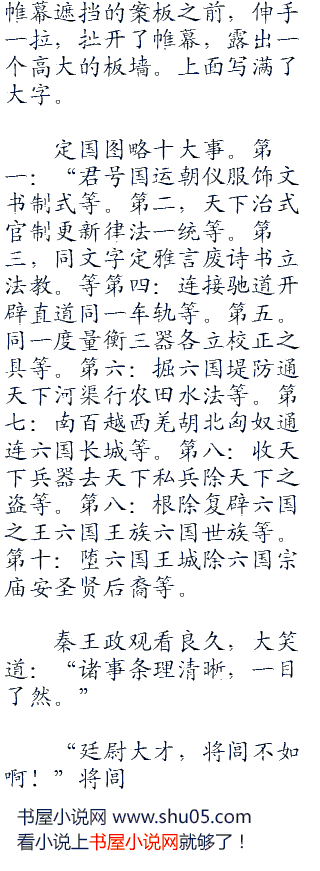 帷幕遮挡的案板之前，伸手
一拉，扯开了帷幕，露出一
个高大的板墙。上面写满了
大字。
定国图略十大事。第
一：“君号国运朝仪服饰文
书制式等。第二，天下治式
官制更新律法一统等。第
三，同文字定雅言废诗书立
法教。等第四：连接驰道开
辟直道同一车轨等。第五。
同一度量衡三器各立校正之
具等。第六：掘六国堤防通
天下河渠行农田水法等。第
七：南百越西羌胡北匈奴通
连六国长城等。第八：收天
下兵器去天下私兵除天下之
盗等。第八：根除复辟六国
之王六国王族六国世族等。
第十：堕六国王城除六国宗
庙安圣贤后裔等。
秦王政观看良久，大笑
道：“诸事条理清晰，一目
了然。”
“廷尉大才，将闾不如
啊！”将闾
书屋小说网 www.shu05.com
看小说上书屋小说网就够了！